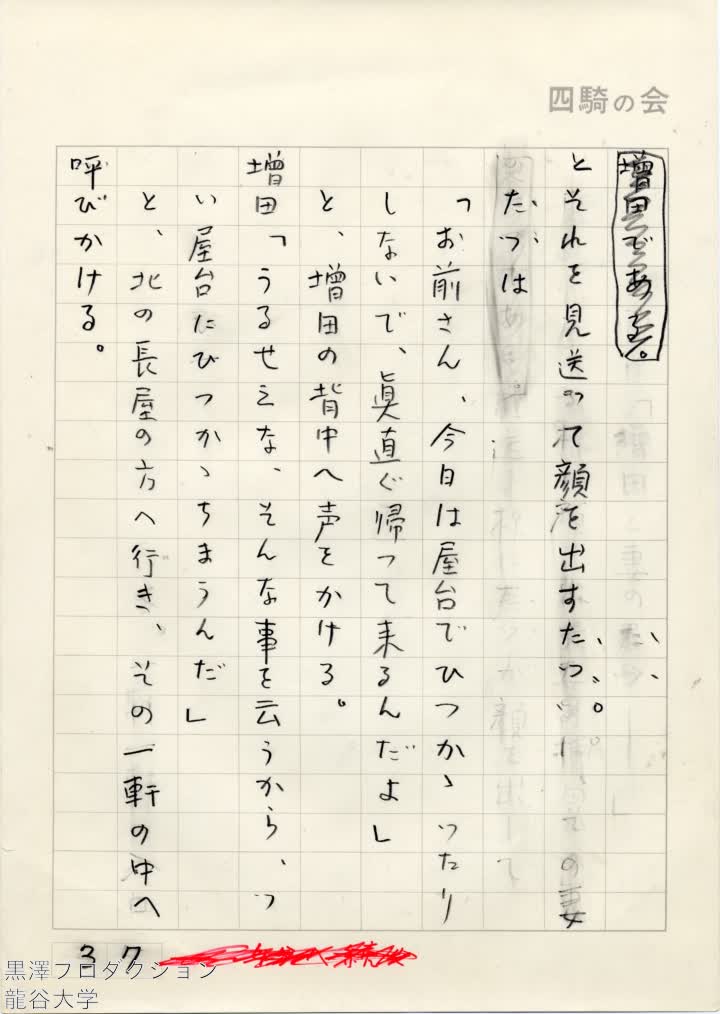 四騎の会
増田である。
とそれを見送って顔を出すたつ。その妻
たつは
「お前さん、今日は屋台でひつかゝつたり
しないで、眞直ぐ帰って来るんだよ」
と、増田の背中へ声をかける。
増田「うるせえな、そんな事を云うから、つ
い屋台にひつかゝちまうんだ」
と、北の長屋の方へ行き、その一軒の中へ
呼びかける。
37
黒澤プロダクション
龍谷大学